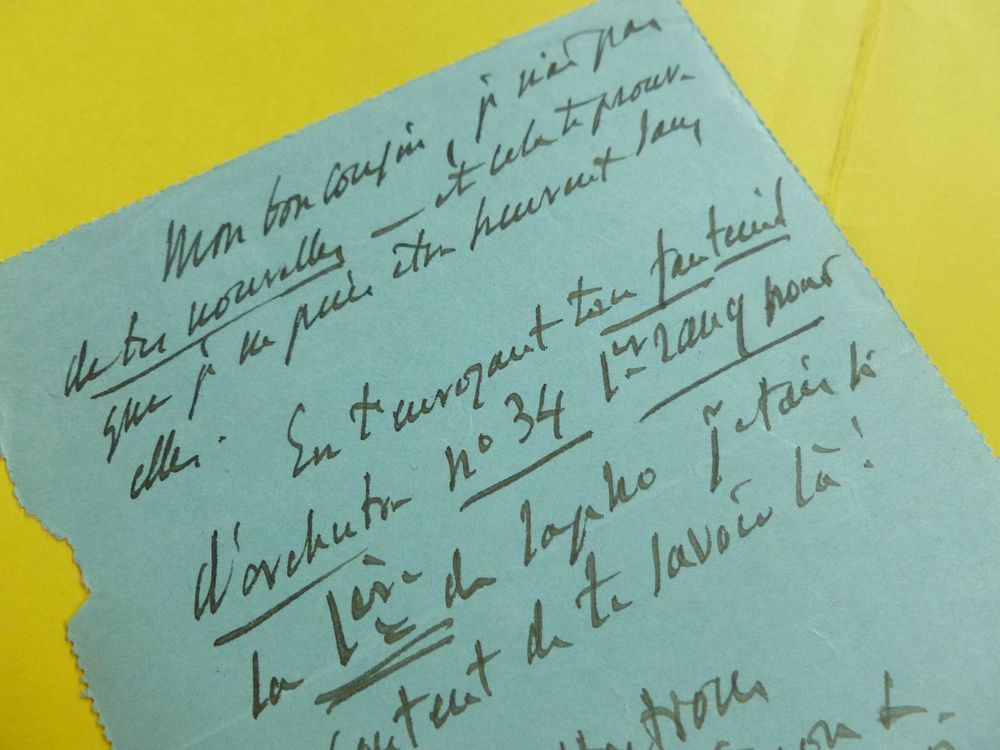 Mon bon cousin, je n'ai pas
de tes nouvelles — et cela te prouve
que je ne puis être heureux sans
elles. En t'envoyant ton fauteuil
d'orchestre no 34 1er rang pour
la 1ère de Sapho j'étais si
content de te savoir là !